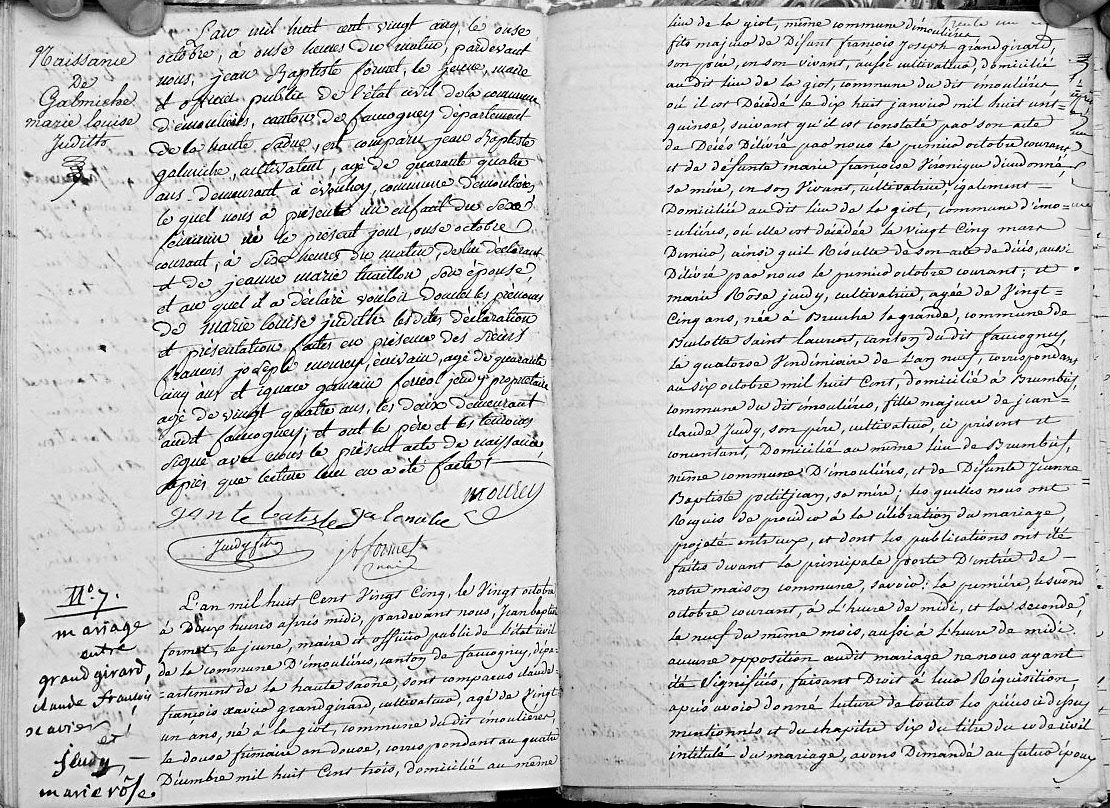 Naissance
De
Galmiche
marie louise
Juditto
L'an mil huit cent vingt cinq, le onse
octobre, à onse heures du matin, pardevant
nous, jean Baptiste fornet, le jeune, maire
et officier public de l'état civil de la commune
d'émoulières, canton de faucogney département
de la haute Saône, est comparu jean Baptiste
galmiche, cultivateur, agé de quarante quatre
ans, demeurant à évouhey, commune d'émoulières
le quel nous a présenté un enfant du Sexe
féminin né le présent jour, onse octobre
courant, à Six heures du matin, de lui déclarant
et de jeanne marie thaillon, Son épouse,
et au quel il a déclaré vouloir donner les prénoms
de marie louise judith les dites déclaration
et présentation faites en présence des Sieurs
françois joseph mourey, écrivain, agé de quarante
cinq ans et ignace germain forico jeudy propriétaire
agé de vingt quatre ans, les deux demeurant
audit faucogney; et ont le père et les témoins
Signé avec nous le présent acte de naissance,
après que lecture leur en a été faite.
mourey
jante batiste galmiche
Judy fils
jb fornet
maire
N.º 7.
mariage
entre
grandgirard,
claude françois
xavier
et
jeudy,
marie rôse
L'an mil huit Cent Vingt Cinq, le Vingt octobre
à Deux heures après midi, pardevant nous, jean baptiste
fornet, le jeune, maire et officier public de l'état civil
de la commune D'émoulières, canton de faucogney, dépa=
=artement de la haute Saône, sont comparus claude
françois xavier grandgirard, cultivateur, agé de Vingt
un ans, né à la giot, commune du dit émoulières,
le douse frimaire an douse, correspondant au quatre
Décembre mil huit Cent trois, domicilié au même
trente un
lieu de la giot, même commune d'émoulières,
fils majeur de Défunt françois Joseph grandgirard,
son père, en son vivant, aussi cultivateur, domicilié
au dit lieu de la giot, commune du dit émoulières,
où il est Décédé le dix huit janvier mil huit cent=
quinse, suivant qu'il est constaté par son acte
de Décès Délivré par nous le premier octobre courant
et de défunte marie françoise Véronique dieudonné,
sa mère, en son Vivant, cultivatrice également =
Domiciliée au dit lieu de la giot, commune d'émo=
=ulières, où elle est décédée le Vingt Cinq mars
Dernier, ainsi qu'il Résulte de son acte de décès, aussi
Délivré par nous le premier octobre courant; et
marie Rôse judy, cultivatrice, agée de Vingt=
Cinq ans, née à Breuche la grande, commune de
Beulotte Saint Laurent, canton du dit faucogney,
Le quatorse Vendémiaire de L'an neuf, correspondant
au six octobre mil huit Cent, domiciliée à Brumbief,
commune du dit émoulières, fille majeure de jean=
claude Judy, son père, cultivateur, ici présent et
consentant, Domicilié au même lieu de Brumbief,
même commune D'émoulières, et de Défunte Jeanne
Baptiste petitjean, sa mère; les quelles nous ont
Requis de procéder à la célébration du mariage,
projeté entr'eux, et dont les publications ont été
faites devant la principale porte D'entrée de =
notre maison commune, savoir: la première, le second
octobre courant, à L'heure de midi, et la seconde,
le neuf du même mois, aussi à L'heure de midi
aucune opposition audit mariage ne nous ayant
été Signifiées, faisant Droit à leur Réquisition
après avoir donné lecture de toutes les pièces ci dessus
mentionnées et du chapitre six du titre du code civil
intitulé du mariage, avons Demandé au futur époux